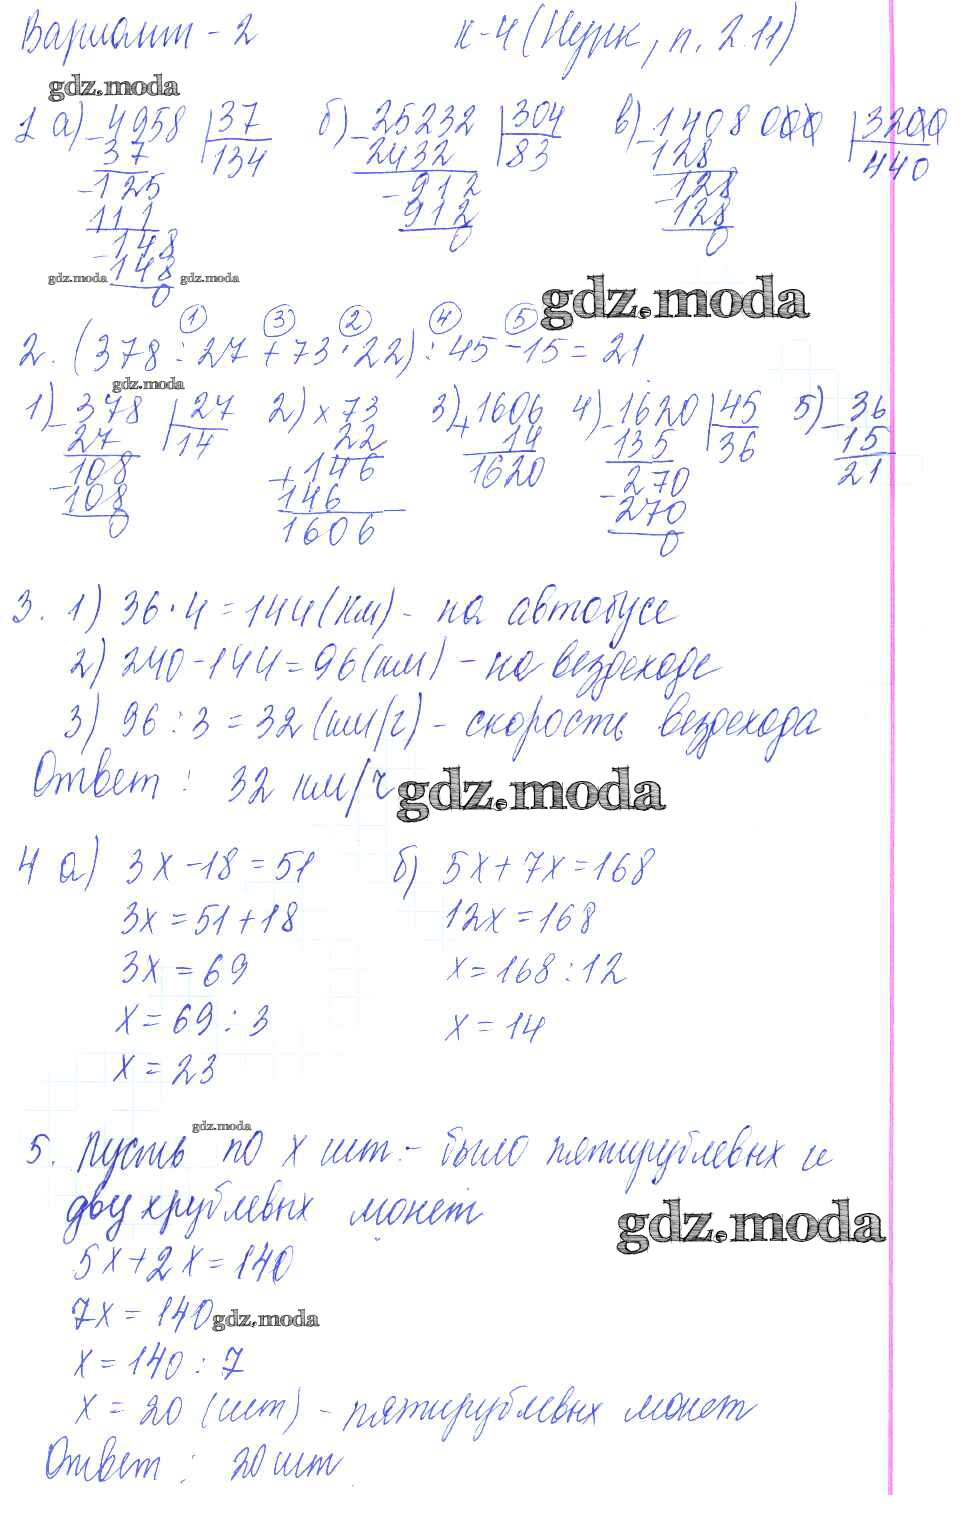 Вариант - 2 К-4 (Нурк, п. 2.11)
gdz.moda
1 а) 4958 | 37 б) 25232 | 304 в) 1408000 | 3200
- 37 134 - 2432 83 - 128 440
- 125 - 912 - 128
111 912 128
- 148 0 0
148
0
gdz.moda gdz.moda
gdz.moda
1 3 2 4 5
2. (378 : 27 + 73 · 22) : 45 - 15 = 21
gdz.moda
1) - 378 | 27 2) x 73 3) + 1606 4) - 1620 | 45 5) - 36
27 14 22 14 135 36 15
- 108 + 146 1620 - 270 21
108 146 270
0 1606 0
3. 1) 36 · 4 = 144 (км) - на автобусе
2) 240 - 144 = 96 (км) - на вездеходе
3) 96 : 3 = 32 (км/ч) - скорость вездехода
Ответ : 32 км/ч
gdz.moda
4 а) 3x - 18 = 51 б) 5x + 7x = 168
3x = 51 + 18 12x = 168
3x = 69 x = 168 : 12
x = 69 : 3 x = 14
x = 23
gdz.moda
5. Пусть по x шт. - было пятирублевых и
двухрублевых монет
gdz.moda
5x + 2x = 140
7x = 140
gdz.moda
x = 140 : 7
x = 20 (шт) - пятирублевых монет
Ответ : 20 шт